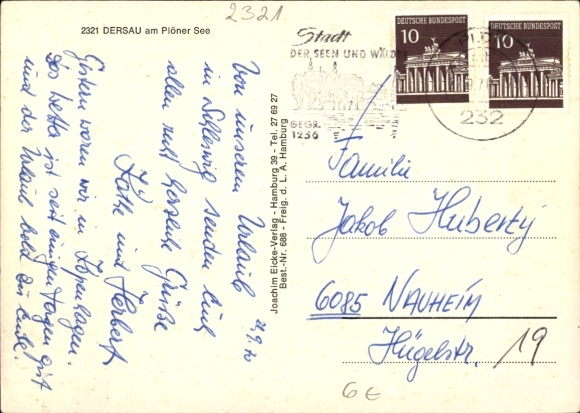 2321
2321 DERSAU am Plöner See
Stadt
DER SEEN UND WÄLDER
GEGR.
1236
10
DEUTSCHE BUNDESPOST
10
DEUTSCHE BUNDESPOST
232
21.9.70
Von unserem Urlaub
in Schleswig senden Euch
allen recht herzliche Grüße
Käthe und Herbert
Gestern waren wir in Kopenhagen.
Das Wetter ist seit einigen Tagen gut
und der Urlaub bald zu Ende.
Joachim Eicke-Verlag - Hamburg 39 - Tel. 27 69 27
Best.-Nr. 688 - Freig. d. L. A. Hamburg
Familie
Jakob Huberty
6085 NAUHEIM
Hügelstr. 19
6€